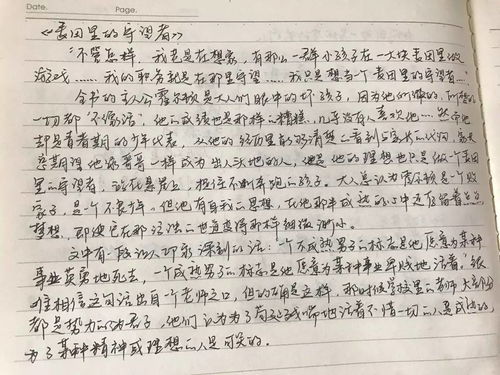 Date.
Page.
《麦田里的守望者》
“不管怎样，我老是在想象，有那么一群小孩子在一大块麦田里做
游戏……我的职务就是在那里守望……我只想当个麦田里的守望者…”
全书的主人公霍尔顿是大人们眼中的坏孩子，因为他们做的、
一切都“不像话”，他的成绩也是那样的糟糕，几乎没有人喜欢他…然而他
却是青春期的少年代表，从他的经历里能够清楚的看到
像哥哥一样成为出人头地的人，他的理想也只是做个麦田
里的守望者，站在悬崖上，捉住不断奔跑的孩子。大人总认为霍尔顿是个败
家子，是一个不良少年。但他有自我的思想，在他那半成熟的心中还留着
梦想，即使已在那污浊的世道变得那样细微渺小。
文中有一段让人印象深刻的话：“一个不成熟男子的标志是他愿意为某种
事业英勇地死去，一个成熟男子的标志是他愿意为某种事业卑贱地活着。”很
难相信这句话出自一个老师之口，但的确是这样，那时候学校里的老师，大部分
都是势力的伪君子，他们认为为了苟延残喘地活着不惜一切的人是成熟的，
为了某种精神或理想的人是可笑的。